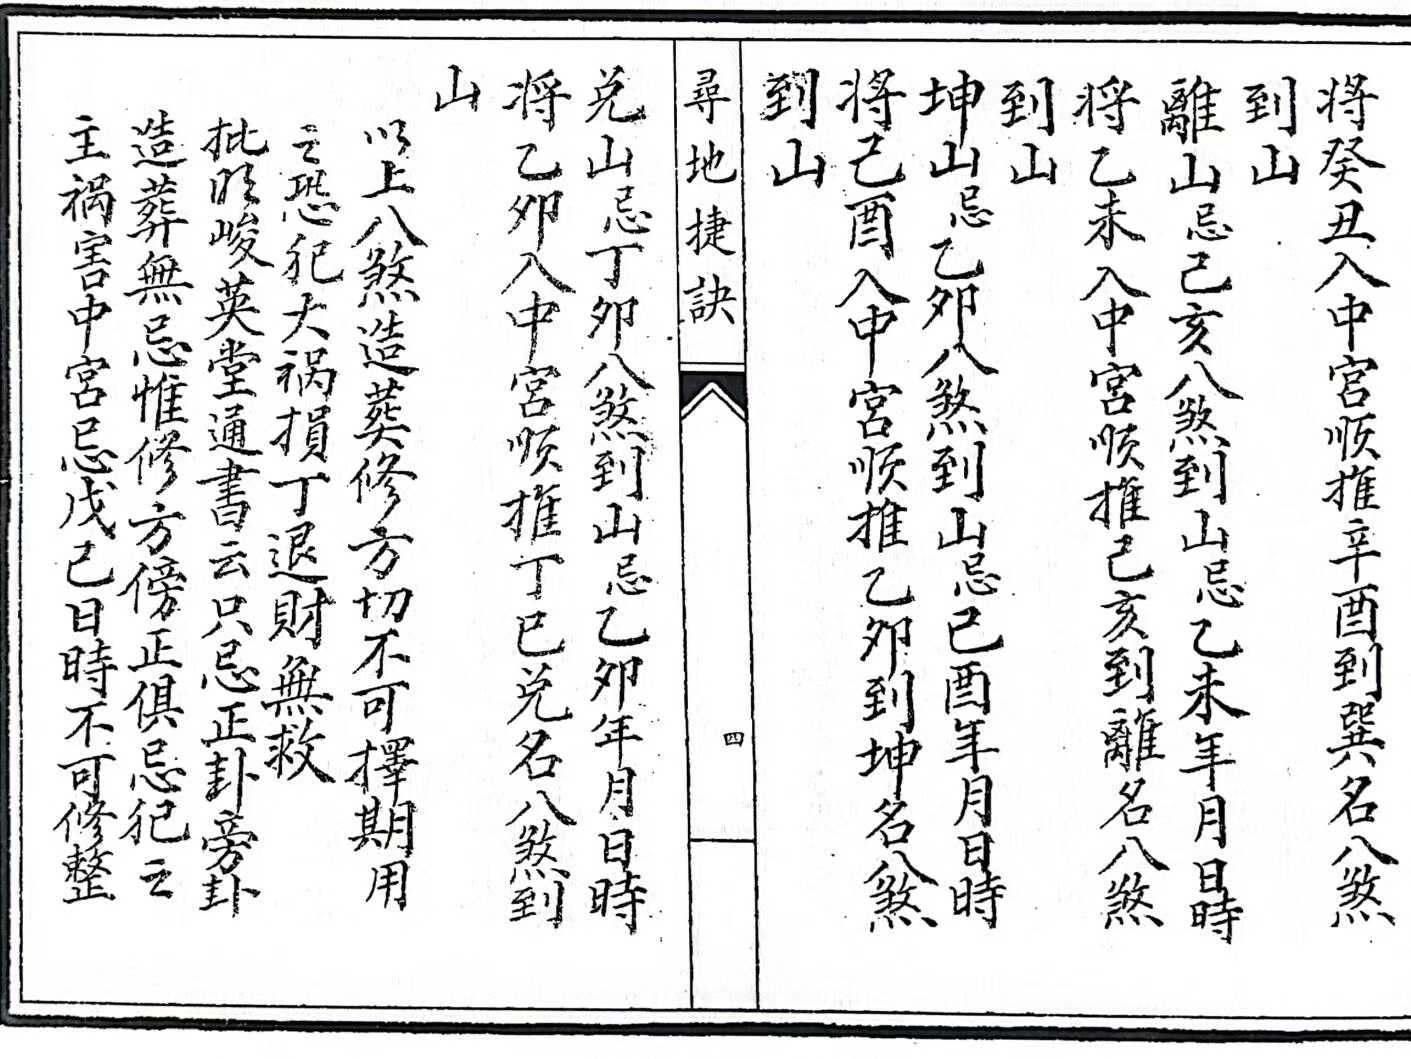 将癸丑入中宮順推辛酉到巽名八煞
到山
離山忌己亥八煞到山忌乙未年月日時
将乙未入中宮順推己亥到離名八煞
到山
坤山忌乙卯八煞到山忌己酉年月日時
将己酉入中宮順推乙卯到坤名八煞
到山
尋地捷訣
四
兑山忌丁卯八煞到山忌乙卯年月日時
将乙卯入中宮順推丁巳兑名八煞到
山
以上八煞造葬修方切不可擇期用
之恐犯大祸損丁退財無救
批明峻英堂通書云只忌正卦旁卦
造葬無忌惟修方傍正俱忌犯之
主祸害中宮忌戊己日時不可修整